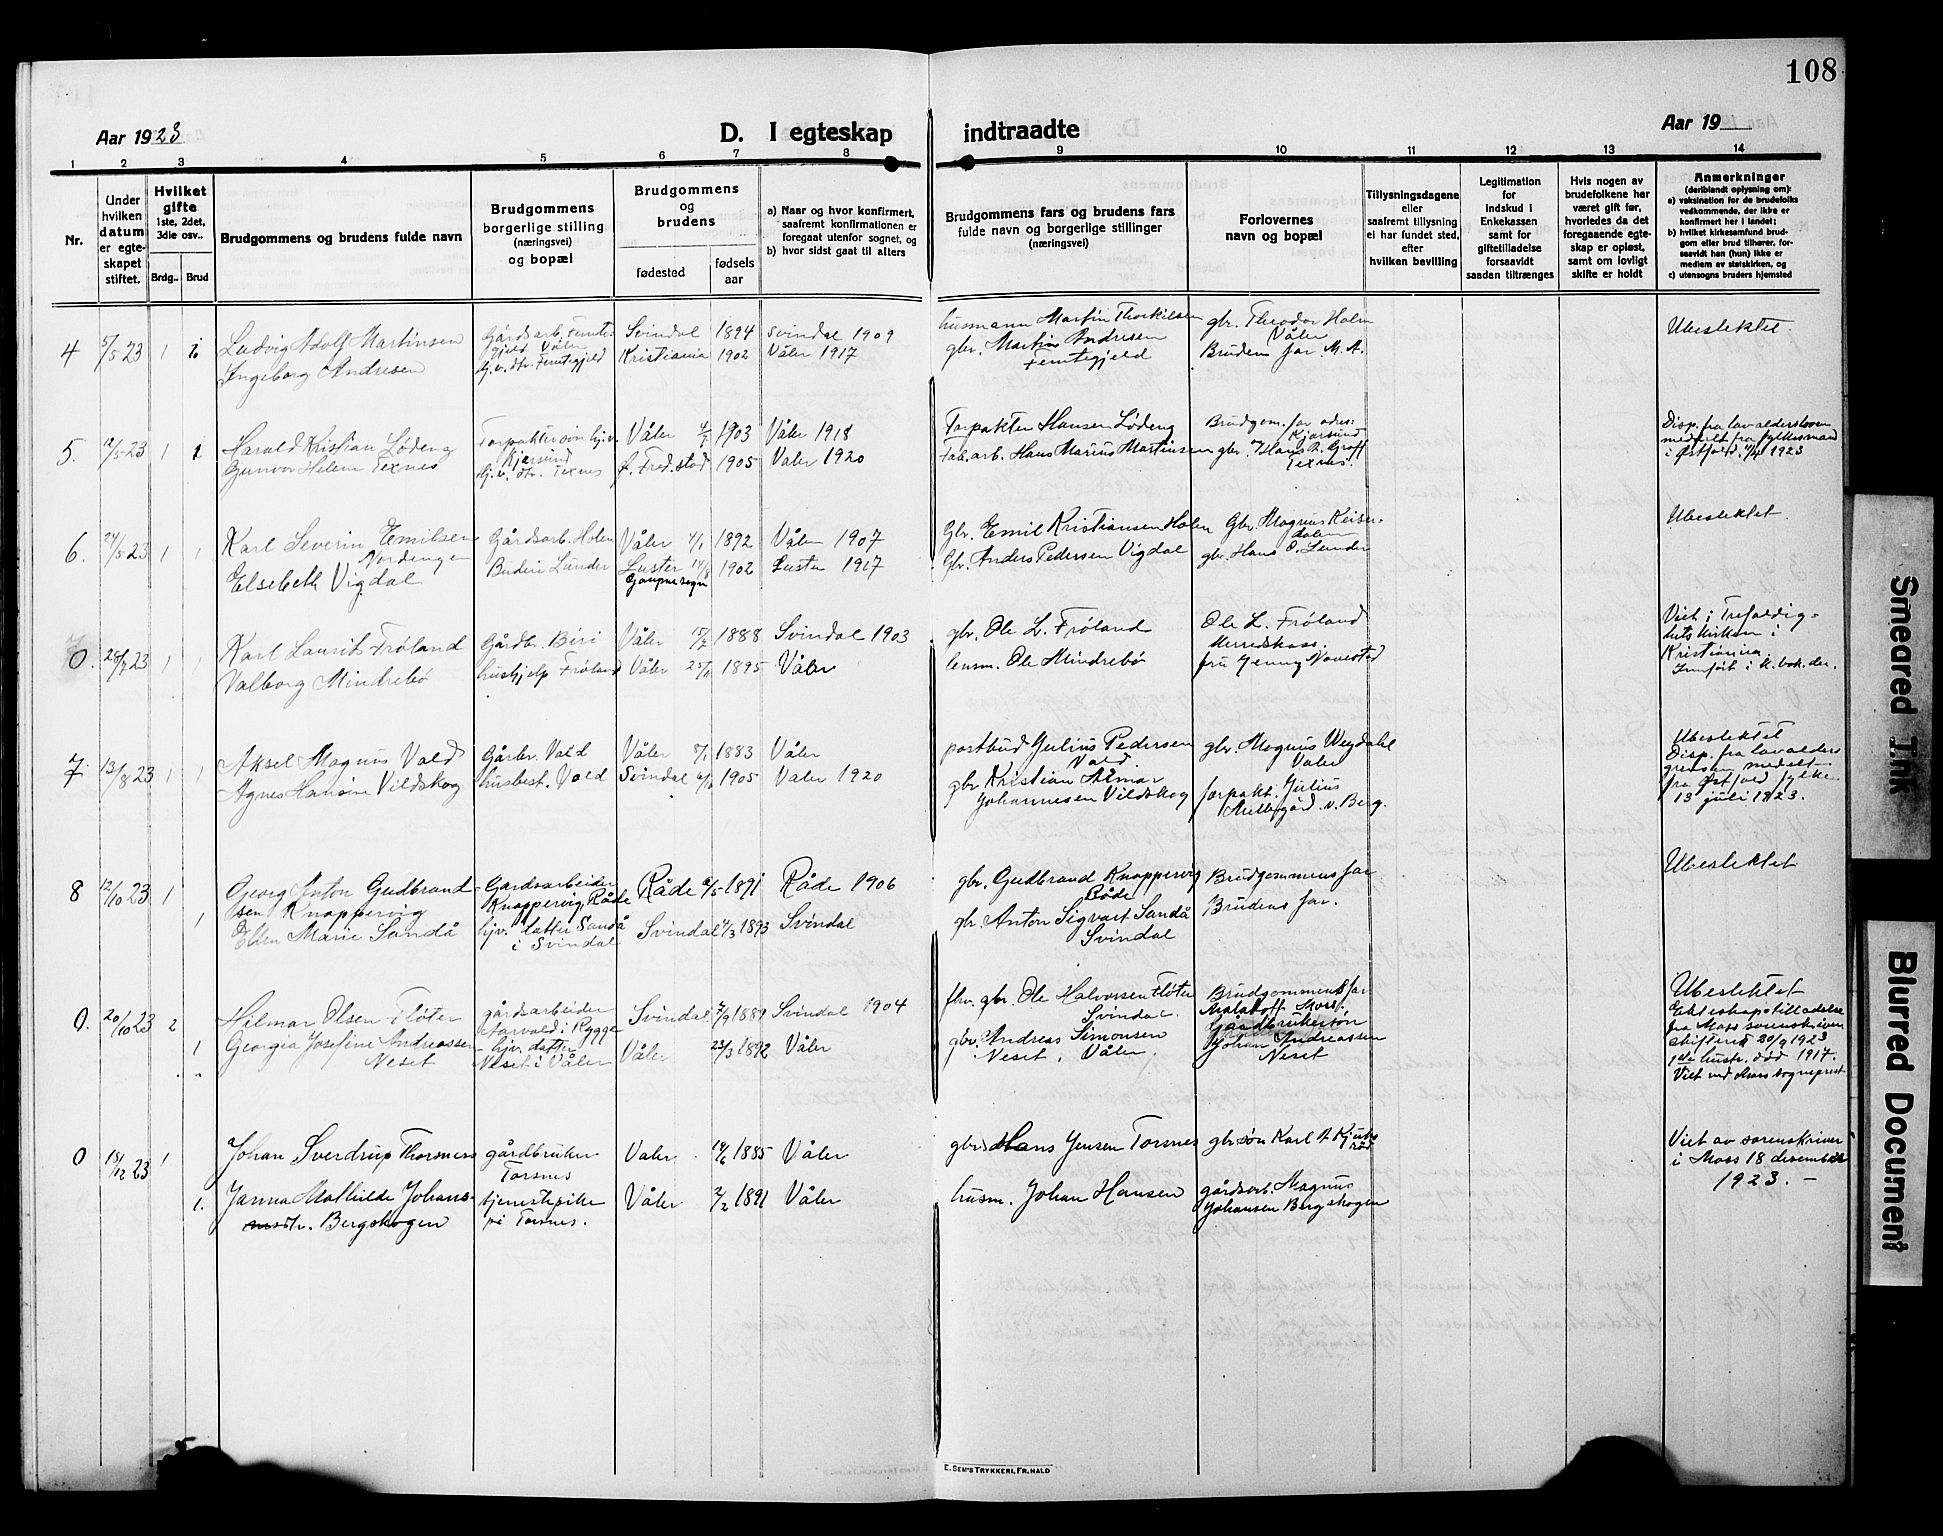 108
Aar 1923
D. I egteskap indtraadte
Aar 19
1 2 3 4 5 6 7 8 9 10 11 12 13 14
Nr.
Under
hvilken
datum
er egte-
skapet
stiftet.
Hvilket
gifte
1ste, 2det,
3die osv..
Brdg..
Brud
Brudgommens og brudens fulde navn
Brudgommens
borgerlige stilling
(næringsvei)
og bopæl
Brudgommens
og
brudens
fødested
fødsels
aar
a) Naar og hvor konfirmert,
saafremt konfirmationen er
foregaat utenfor sognet, og
b) hvor sidst gaat til alters
Brudgommens fars og brudens fars
fulde navn og borgerlige stillinger
(næringsvei)
Forlovernes
navn og bopæl
Tillysningsdagene
eller
saafremt tillysning
ei har fundet sted,
efter
hvilken bevilling
Legitimation
for
indskud i
Enkekassen
samt for
giftetilladelse
forsaavidt
saadan tiltrænges
Hvis nogen av
brudefolkene har
været gift før,
hvorledes da det
foregaaende egte-
skap er opløst,
samt om lovligt
skifte er holdt
Anmerkninger
(deriblandt oplysning om):
a) vaksination for de brudefolks
vedkommende, der ikke er
konfirmert her i landet;
b) hvilket kirkesamfund brud-
gom eller brud tilhører, for-
saavidt han (hun) ikke er
medlem av statskirken, og
c) utensogns bruders hjemsted
4 5/5 23 1 Ludvig Adolf Martinsen Gårdsarb. Femte- Svindal 1894 Svindal 1909 husmann Martin Thorkilsen gbr. Theodor Holm Ubeslektet.
gjeld Våler Våler
Ingeborg Andresen hj.v. dtr. Femtegjeld Kristiania 1902 Våler 1917 gbr. Martin Andresen Brudens far. M. A.
Femtegjeld
5. 12/5 23 1 1 Harald Kristian Lødeng Forpaktersøn hj.v. Våler 1903 Våler 1918 Forpakter Hansen Lødeng Brudgom. far adr: Disp. fra lavaldersloven
Kjærsund Kjærsund meddelt fra fylkesmand
Gunvor Helene Texnes hj.v. dtr. Texnes f. Fred.stad 1905 Våler 1920 Fab.arb. Hans Marius Martinsen gbr. Hans R. Groff i Østfold 1923
Texnes.
6. 24/5 23 1 1 Karl Severin Emilsen Gårdsarb. Holen Våler 4/1 1892 Våler 1907 Gbr. Emil Kristiansen Holen Gbr. Magnus Keiser- Ubeslektet.
Nordengen dalen
Elsebeth Vigdal Budeie Lunder Luster 14/8 1902 Luster 1917 Gbr. Anders Pedersen Vigdal gbr. Hans O. Lunder
Gaupne sogn
0. 28/7 23 1 1 Karl Laurits Frøland Gårdbr. Biri Våler 1888 Svindal 1903 gbr. Ole L. Frøland Ole L. Frøland Viet i Trefoldig-
Herredskass. hetskirken i
Valborg Mindrebø hushjelp Frøland Våler 1895 Våler lensm. Ole Mindrebø fru Jenny Navestad Kristiania.
Innført i k.bok der.
7 13/8 23 1 1 Aksel Magnus Vald Gårbr. Vald Våler 1883 Våler postbud Julius Pedersen gbr. Magnus Wegdahl Ubeslektet
Vald. Våler Disp. fra lavalders
Agnes Hansine Vildskog husbest. Vald Svindal 1905 Våler 1920 gbr Kristian Almar forpakt. Julius grensen meddelt
Johannesen Vildskog v. Berg. fra Østfold fylke
13 juli 1923.
8 12/10 23 1 Georg Anton Gudbrand- Gardsarbeider Råde 6/5 1891 Råde 1906 gbr. Gudbrand Knappervig Brudgommens far Ubeslektet
sen Knappervig Knappervig, Råde Råde
1 Ellen Marie Sandå hjv. datter Sandå Svindal 4/3 1893 Svindal gbr. Anton Sigvart Sandå Brudens far.
i Svindal Svindal
0. 20/10 23 2 Hilmar Olsen Fløter gårdsarbeider Svindal 7/9 1889 Svindal 1904 fhv. gbr. Ole Halvorsen Fløter Brudgommens far Ubeslektet
Aarvold i Rygge Svindal. Malakoff Moss. Ekteskapstilladelse
1 Georgia Josefine Andreassen hjv. datter Våler 23/3 1892 Våler gbr. Andreas Simonsen Gårdbrukersøn fra Moss sorenskriver
Neset Neset i Våler Neset i Våler. Johan Andreassen skifteret 20/9 1923
Neset 1ste hustr. død 1917.
Viet ved Moss sogneprest
0 18/12 23 1 Johan Sverdrup Thorsnes gårdbruker Våler 14/6 1885 Våler gbr. Hans Jensen Torsnes gbr.søn Karl A. Viet av sorenskriver
Torsnes i Moss 18 desember
1. Janna Mathilde Johans- tjenestepike Våler 2/2 1891 Våler husm. Johan Hansen gårdsarb. Magnus 1923. –
dtr. Bergskogen på Torsnes. Johansen Bergskogen
E. SEM'S TRYKKERI, FR.HALD
Smeared Ink
Blurred Document